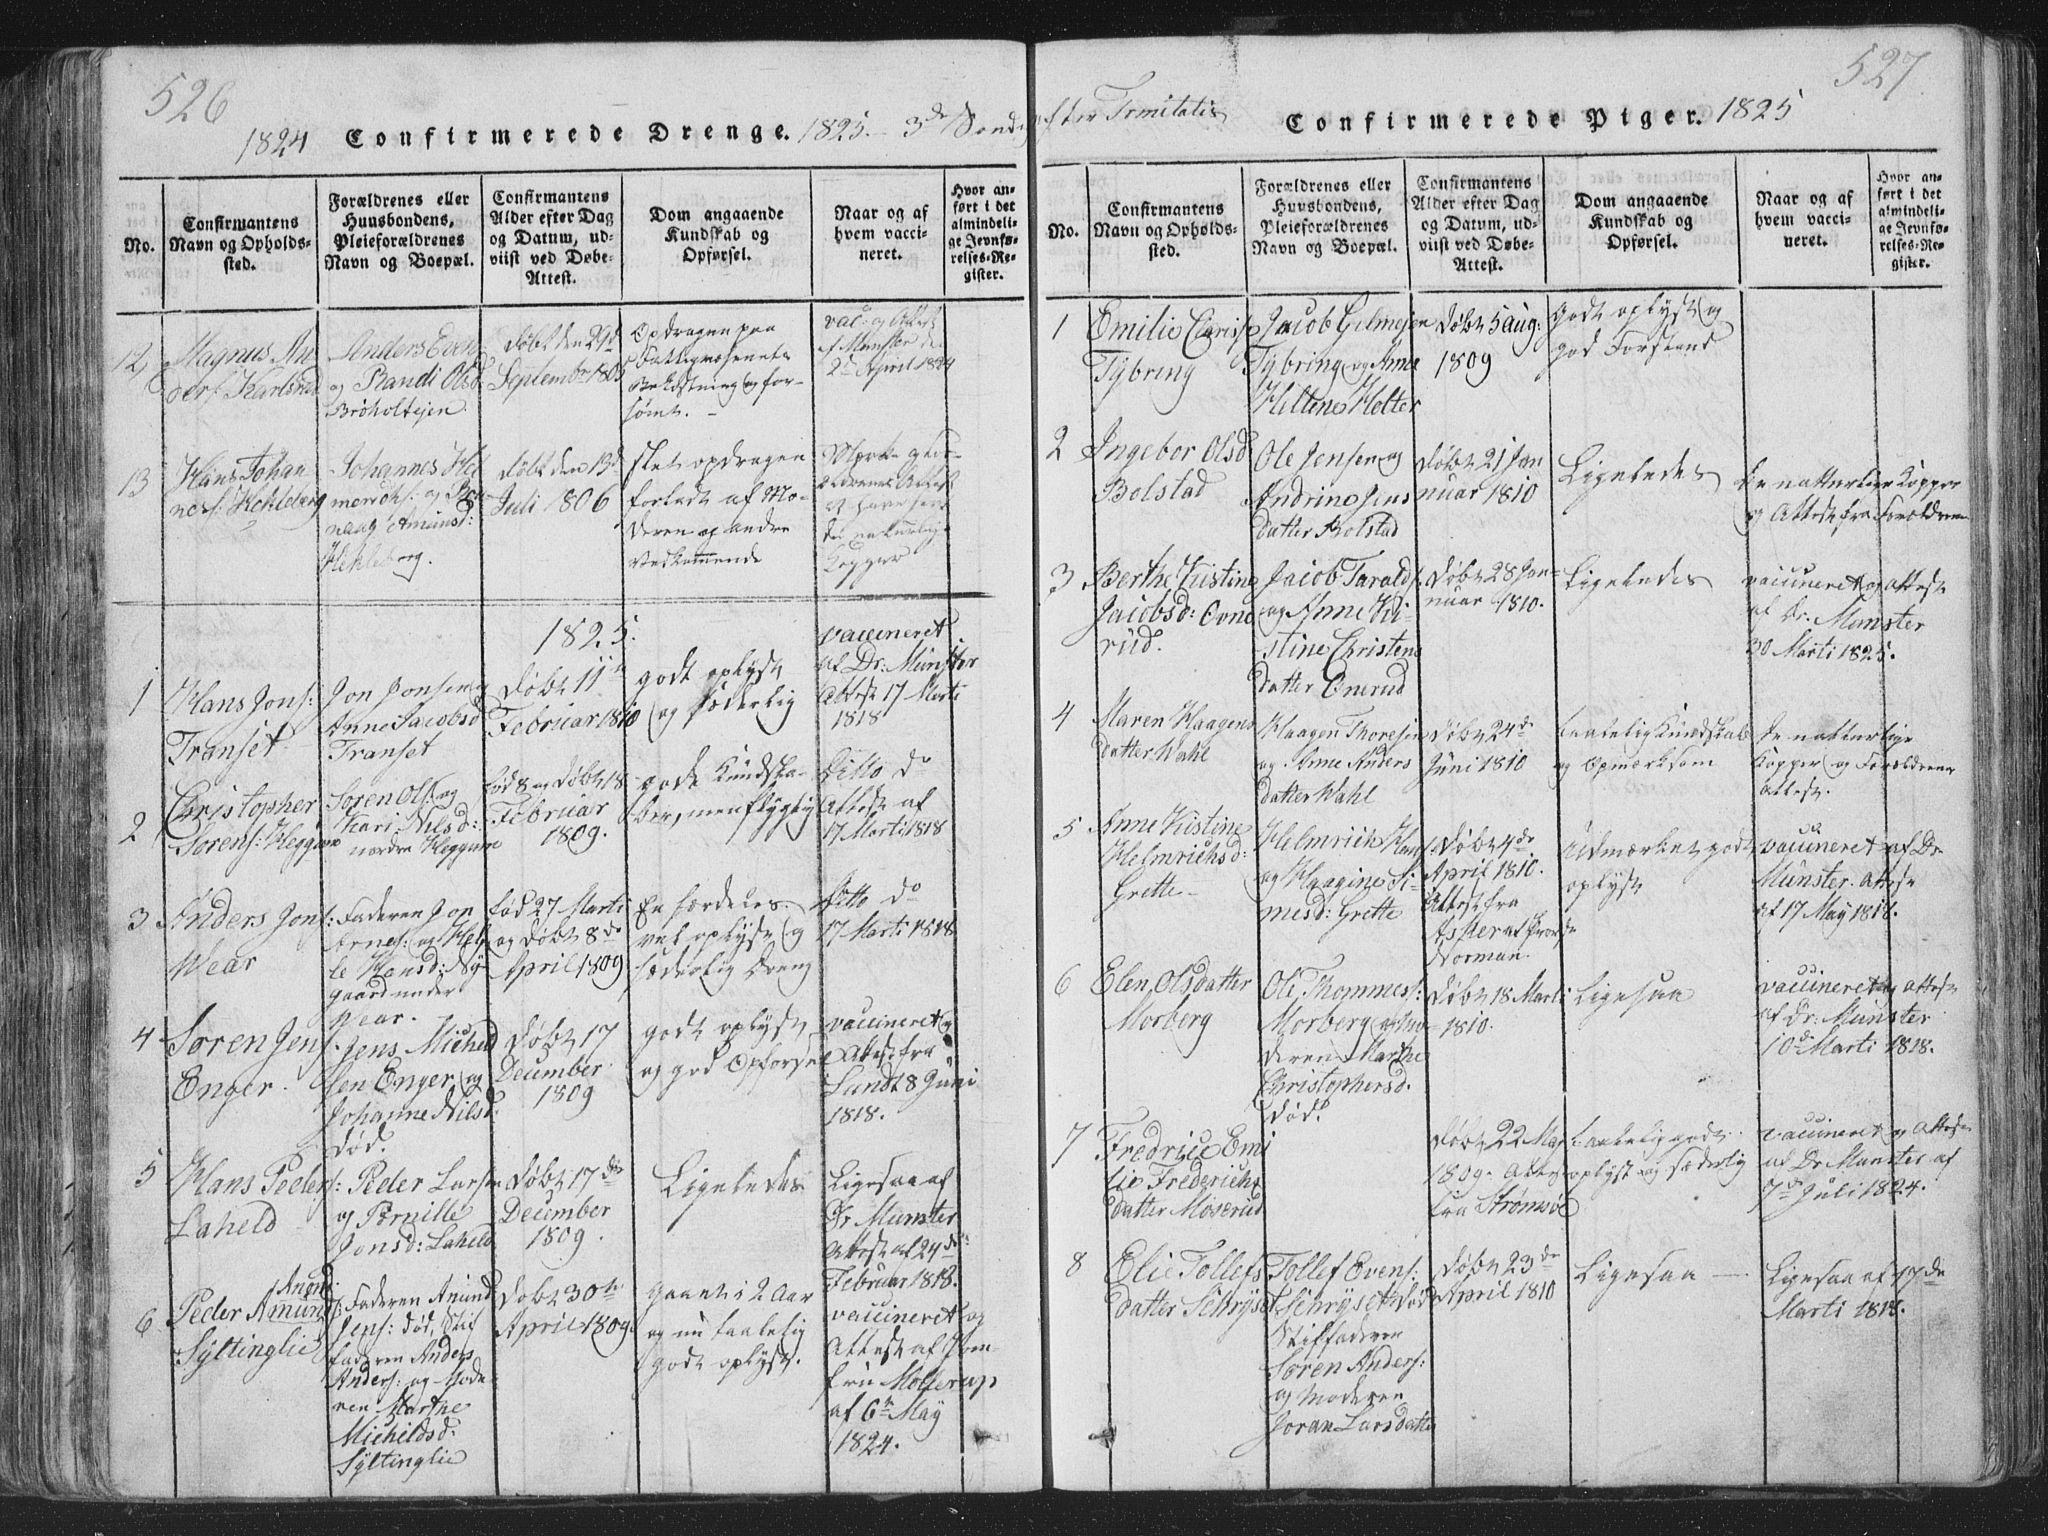 526
1824 Confirmerede Drenge. 1825. 3de Sønd
No.
Confirmantens
Navn og Opholds-
sted.
Forældrenes eller
Huusbondens,
Pleieforældrenes
Navn og Boepæl.
Confirmantens
Alder efter Dag
og Datum, ud-
viist ved Døbe-
Attest.
Dom angaaende
Kundskab og
Opførsel.
Naar og af
hvem vacci-
neret.
Hvor an-
ført i det
almindeli-
ge Jevnfø-
relses-Re-
gister.
12
Magnus An
ders: Karlsrud
Anders Even
og Randi Olsd
Bröholtejen
Døbt den 29d
September 1805
Opdragen paa
Fattigvæsenets
Bekostning og for-
sømt. -
vac: og Attest
f. Munster de
2d April 1824
13
Hans Johan
nes: Hekleberg
Johannes Hel
mendts: og
naag Amunds:
Hekleberg.
Døbt den 13d
Juli 1806
slet opdragen
forladt af Mo-
deren og andre
Vedkommende
og For-
ældrenes Attest
at have havt
de naturlige
Kopper
1825.
1
Hans Jons:
Transet
Jon Jonsen og
Anne Jacobsd
Transet
Døbt 11te
Februar 1810
godt oplyst
og sædelig
vaccineret
af Dr: Munster
Attest 17 Marti
1818
2
Christopher
Sorens: Heggum
Soren Ols: og
Kari Nilsd:
nordre Heggum
fød 8 og Døbt 18
Februar
1809.
gode Kundska-
ber, men flygtig
Ditto do
Attest af
17 Marti 1818
3
Anders Jons:
Wear
Faderen Jon
Arnes: og Hel
le Hansd: Ny-
gaard under
Wear.
fød 27 Marti
og Døbt 8de
April 1809
En særdeles
vel oplyst og
sædelig Dreng
Ditto do
17 Marti 1818
4
Soren Jens:
Enger.
Jens Michel
sen Enger og
Johanne Nilsd:
død.
Døbt 17
December
1809
godt oplyst
og god Opførsel
vaccineret og
Attest fra
Lund 8 Juni
1818.
5
Hans Peders:
Laheld
Peder Larsen
og Pernille
Jonsd: Laheld
Døbt 17de
December
1809.
Ligeledes
Ligesaa af
Dr Munster
Attest af 24de
Februar 1818.
6
Anund
Peder Amund
Syltinglie
Faderen Anund
Jens: død, Stif
faderen Anders
Anders: og Mode
ren Marthe
Michildsd:
Syltinglie
Døbt 30te
April 1809
Gaaet i 2 Aar
og nu taalelig
godt oplyst.
vaccineret og
Attest af Jom-
fru Mollerup
af 6te May
1824.
527
efter Trinitatis Confirmerede Piger. 1825
No.
Confirmantens
Navn og Opholds-
sted.
Forældrenes eller
Huusbondens,
Pleieforældrenes
Navn og Boepæl.
Confirmantens
Alder efter Dag
og Datum, ud-
viist ved Døbe-
Attest.
Dom angaaende
Kundskab og
Opførsel.
Naar og af
hvem vacci-
neret.
Hvor an-
ført i det
almindeli-
ge Jevnfø-
relses-Re-
gister.
1
Emilie Clariss
Tybring
Jacob Gelmejen
Tybring og Anne
Hellene Holter
Døbt 5 aug:
1809
Godt oplyst og
god Forstand
2
Ingebor Olsd
Bolstad
Ole Jensen og
Andrine Jens
datter Bolstad
Døbt 21 Jan
nuar 1810
Ligeledes
De naturlige Kopper
og Attest fra Forældrene
3
Berthe Kistine
Jacobsd: One
rud.
Jacob Tarald:
og Anne Ki-
stine Christens
datter Onerud
Døbt 28 Jan-
nuar 1810.
Ligeledes
vaccineret og attest
af Dr. Munster
30 Marti 1825.
4
Maren Haagens
datter Wahl
Haagen Thoresen
og Anne Anders
datter Wahl
Døbt 24de
Juni 1810
taalelig Kundskab
og Opmærksom
De naturlige
Kopper og Forældrenes
attest.
5
Anne Kistine
Helmrichsd:
Grette
Helmrich Han
og Haagine Si-
mesd: Grette
Døbt 4de
April 1810.
Attest fra
Asker af
Norman.
Udmærket godt
oplyst
vaccineret af Dr
Munster. attest
af 17 May 1818.
6
Elen Olsdatter
Morberg
Ole Thommes:
Morberg og Mo-
deren Marthe
Christophersd.
død.
Døbt 18 Marti
1810.
Ligesaa
vaccineret og attest
af Dr: Munster
10de Marti 1818.
7
Fredrice Emi
lie Frederichs
datter Moserud
Døbt 22 May
1809. Attest
fra Strømsøe
taalelig godt
oplyst og sædelig
vaccineret og attest
af Dr Munster af
7de Juli 1824.
8
Elie Tollefs
datter Schryset
Tollef Evens:
Schryset død
Stiffaderen
Søren Anders:
og Moderen
Joran Larsdatter
Døbt 23de
April 1810
Ligesaa
Ligesaa af 17de
Marti 1818.